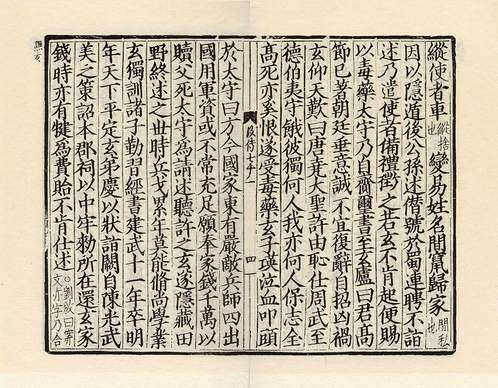 譙玄
縱使者車縱捨也變易姓名閒竄歸家閒私也
因以隱遁後公孫述僭號於蜀連聘不詣
述乃遣使者備禮徵之若玄不肯起便賜
以毒藥太守乃自齎璽書至玄廬曰君高
節已著朝廷垂意誠不宜復辭自招凶禍
玄仰天歎曰唐堯大聖許由恥仕周武至
德伯夷守餓彼獨何人我亦何人保志全
高死亦奚恨遂受毒藥玄子英泣血叩頭
四
於太守曰方今國家東有嚴敵兵師四出
國用軍資或不常充足願奉家錢千萬以
贖父死太守為請述聽許之玄遂隱藏田
野終述之世時兵戈累年莫能脩尚學業
玄獨訓諸子勤習經書建武十一年卒明
年天下平定玄弟慶以狀詣闕自陳光武
美之策詔本郡祠以中牢勑所在還玄家
錢時亦有犍為費貽不肯仕述○劉攽曰案文亦字乃合